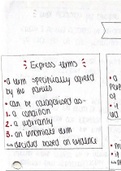 Express terms
• a term specifically agreed
by the parties
• can be categorised as -
1. a condition
2. a warranty
3. an innominate term
↳ decided based on evidence